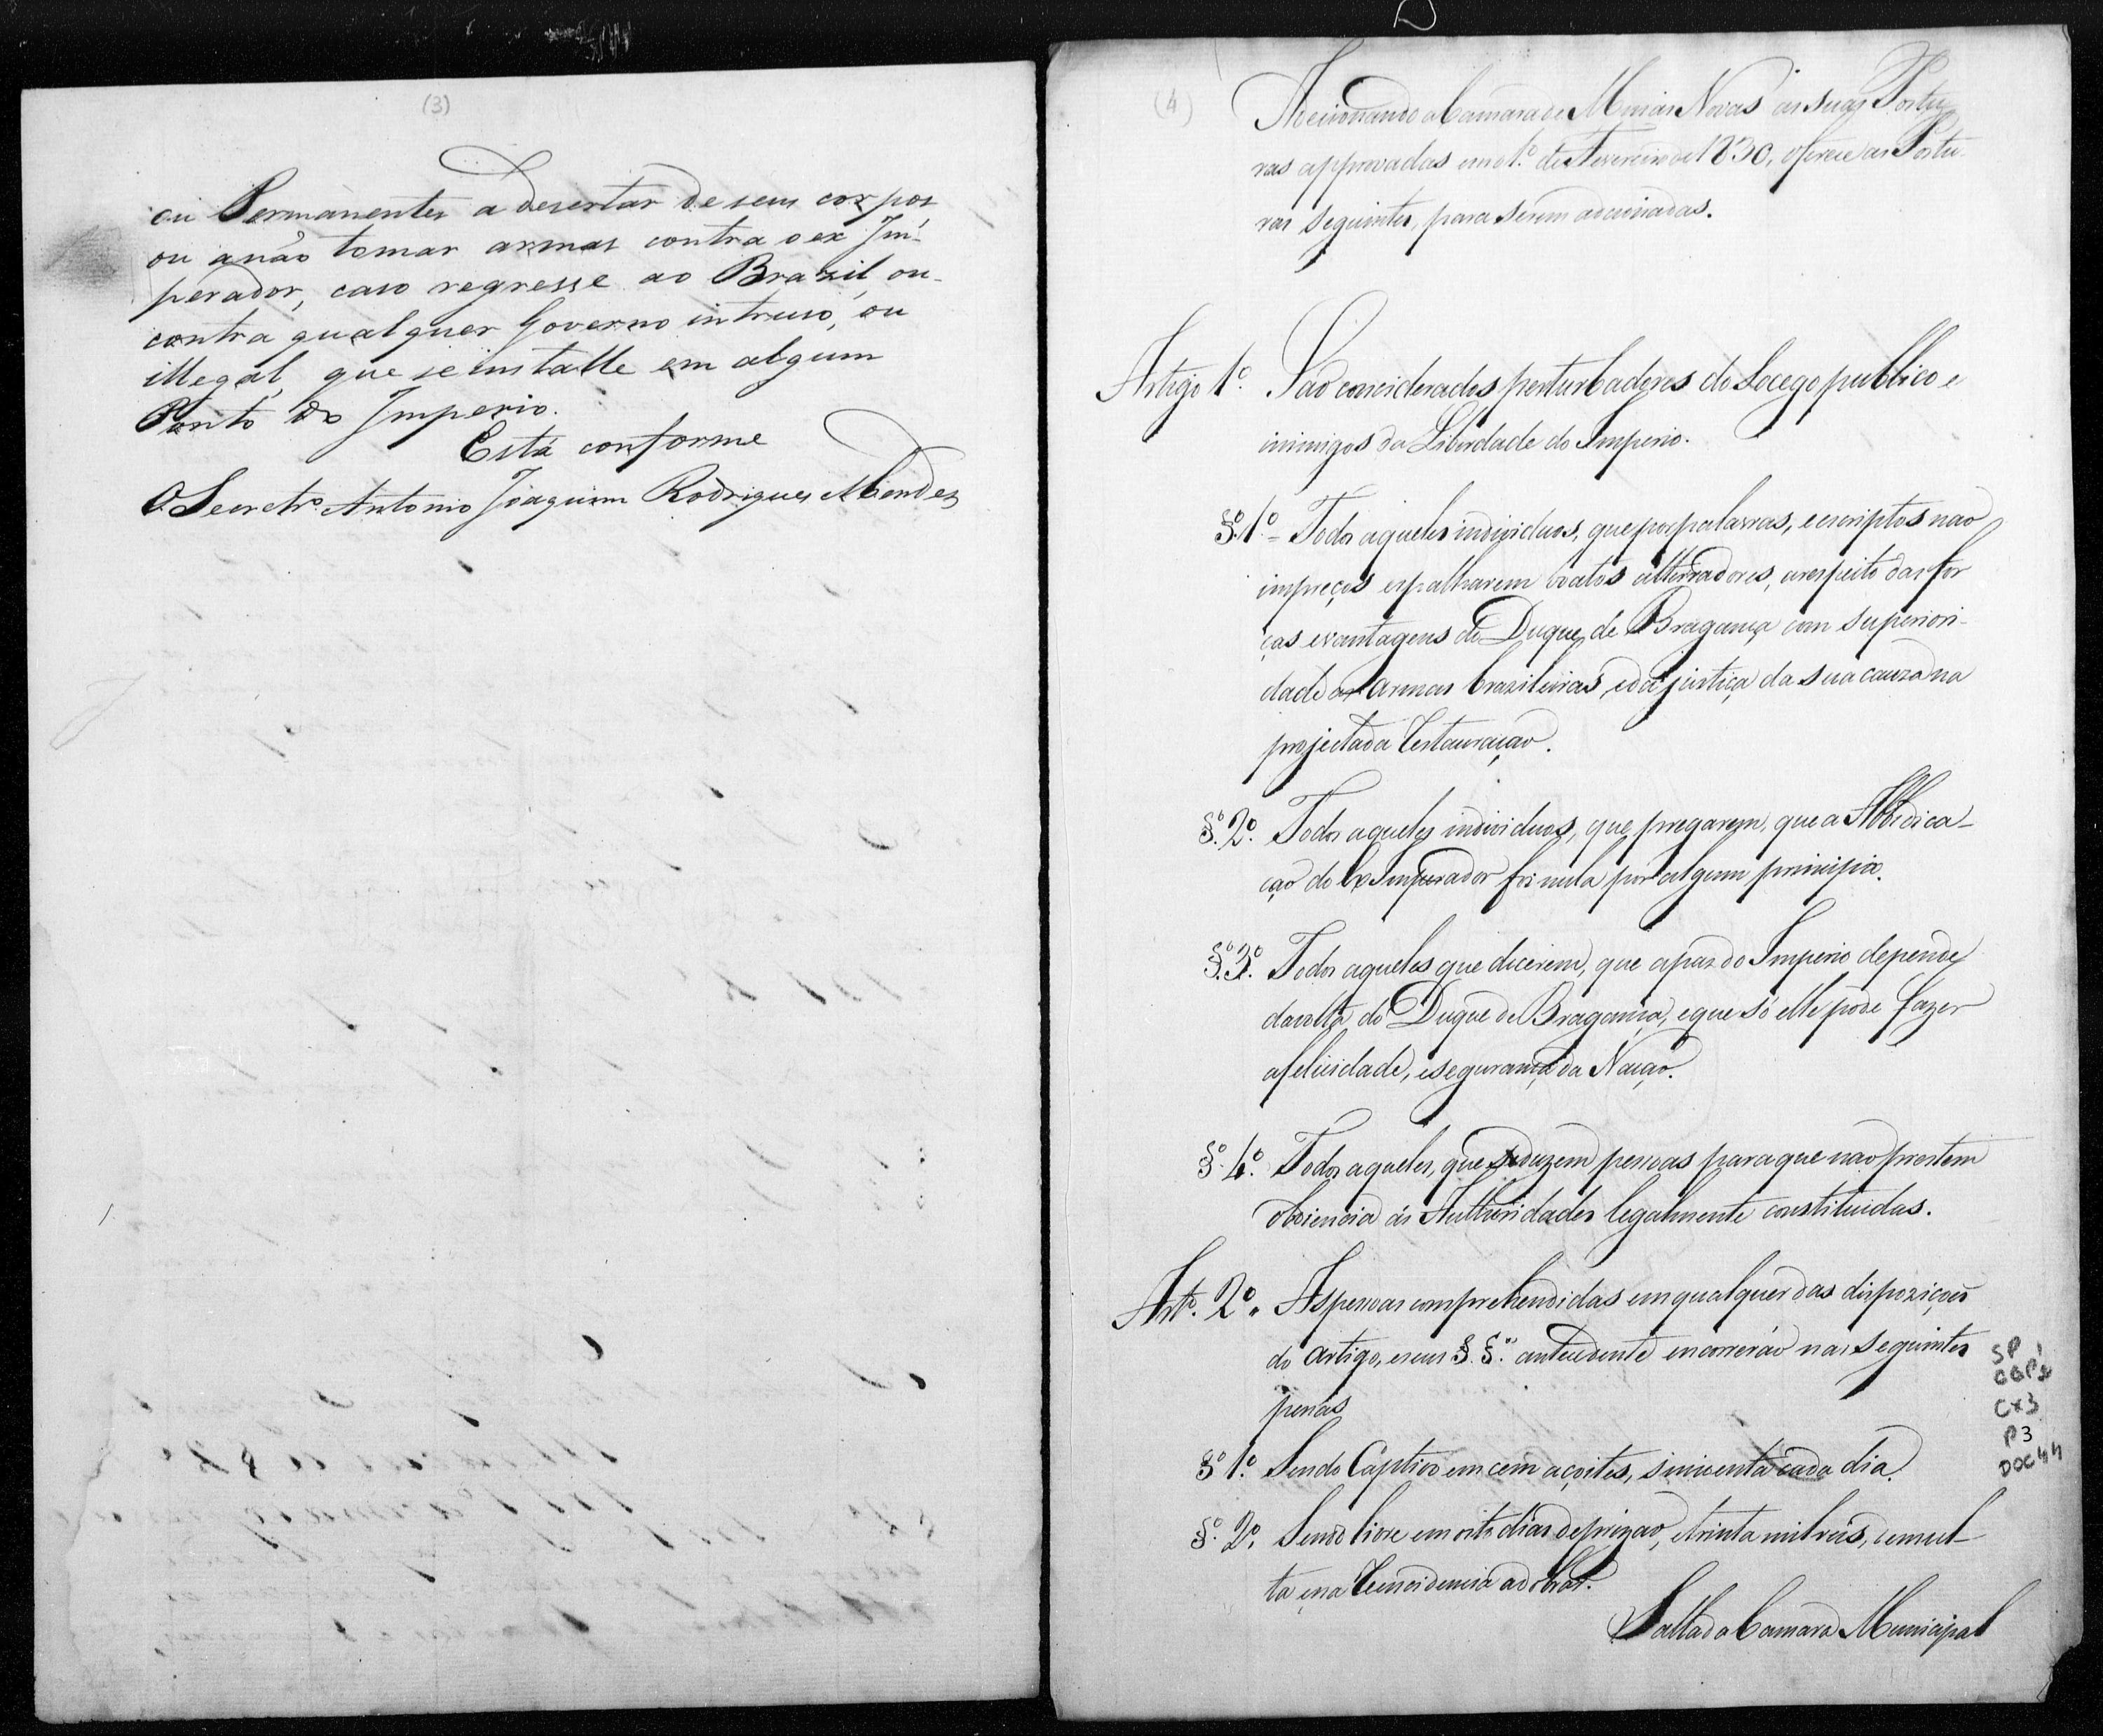 (3)
ou Permanentes a desertar de seus corpos
ou a não tomar armas contra o ex Im-
perador, caso regresse ao Brazil, ou
contra qualquer Governo intruso, ou
illegal, que se installe em algum
Ponto do Imperio.
Está conforme
O Secretr.º Antonio Joaquim Rodrigues Mendes
(4)
Adcionando a Camara de Minas Novas as suas Postu
ras approvadas em o 1.º de Fevereiro de 1830, oferece as Postu-
ras seguintes, para serem adcionadas.
Artigo 1.º São conciderados perturbadores do Socego publico e
inimigos da Liberdade do Imperio.
§.º 1.º = Todos aqueles individuos, que por palavras, e escriptos nao
impreços espalharem boatos atterradores, a respeito das for
ças e vantagens do Duque de Bragança com superiori-
dade as armas brazileiras, e da justiça da sua cauza na
projectada Restauração.
§.º 2.º Todos aqueles individuos, que pregarem, que a Abbdica-
çao do Ex Imperador foi nula por algum principio.
§.º 3.º Todos aqueles que dicerem, que a paz do Imperio depende
da volta do Duque de Bragança, e que só elle pode fazer
a felicidade, e segurança da Nação.
§.º 4.º Todos aqueles, que seduzem pessoas para que nao prestem
obdiencia ás Authoridades legalmente constituidas.
Art.º 2.º As pessoas comprehendidas em qualquer das dispoziçoes
do artigo, e seus §.§.ºs antecedente encorrerão nas seguintes
penas
§.º 1.º Sendo Captivo em cem açoites, sincoenta cada dia.
§.º 2.º Sendo livre em oito dias de prizao, e trinta mil reis, de mul-
ta e na Reincidencia adobrar.
Salla da Camara Municipal
SP
CX3
P3
DOC44